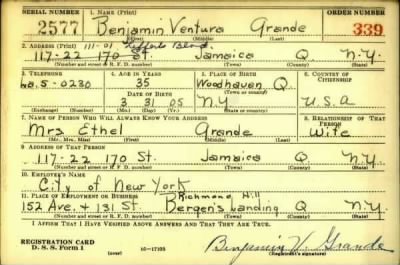 SERIAL NUMBER 1. NAME (Print) ORDER NUMBER
2577 Benjamin Ventura Grande 339
(First) (Middle) (Last)
2. ADDRESS (Print) 111-01 Lefferts Blvd.
117-22 170 St. Jamaica Q N.Y.
(Number and street or R. F. D. number) (Town) (County) (State)
3. TELEPHONE 4. AGE IN YEARS 5. PLACE OF BIRTH 6. COUNTRY OF CITIZENSHIP
5-0230 35 Woodhaven Q.
(Town or county)
DATE OF BIRTH
3 31 05 N.Y U.S.A
(Exchange) (Number) (Mo.) (Day) (Yr.) (State or country)
7. NAME OF PERSON WHO WILL ALWAYS KNOW YOUR ADDRESS 8. RELATIONSHIP OF THAT PERSON
Mrs Ethel Grande Wife
(Mr., Mrs., Miss) (First) (Middle) (Last)
9. ADDRESS OF THAT PERSON
117-22 170 St. Jamaica Q N.Y.
(Number and street or R. F. D. number) (Town) (County) (State)
10. EMPLOYER'S NAME
City of New York
11. PLACE OF EMPLOYMENT OR BUSINESS Richmond Hill
152 Ave. + 131 St. Bergen's Landing Q N.Y.
(Number and street or R. F. D. number) (Town) (County) (State)
I AFFIRM THAT I HAVE VERIFIED ABOVE ANSWERS AND THAT THEY ARE TRUE.
REGISTRATION CARD
D. S. S. Form 1 16-17105 Benjamin V. Grande
(Registrant's signature)